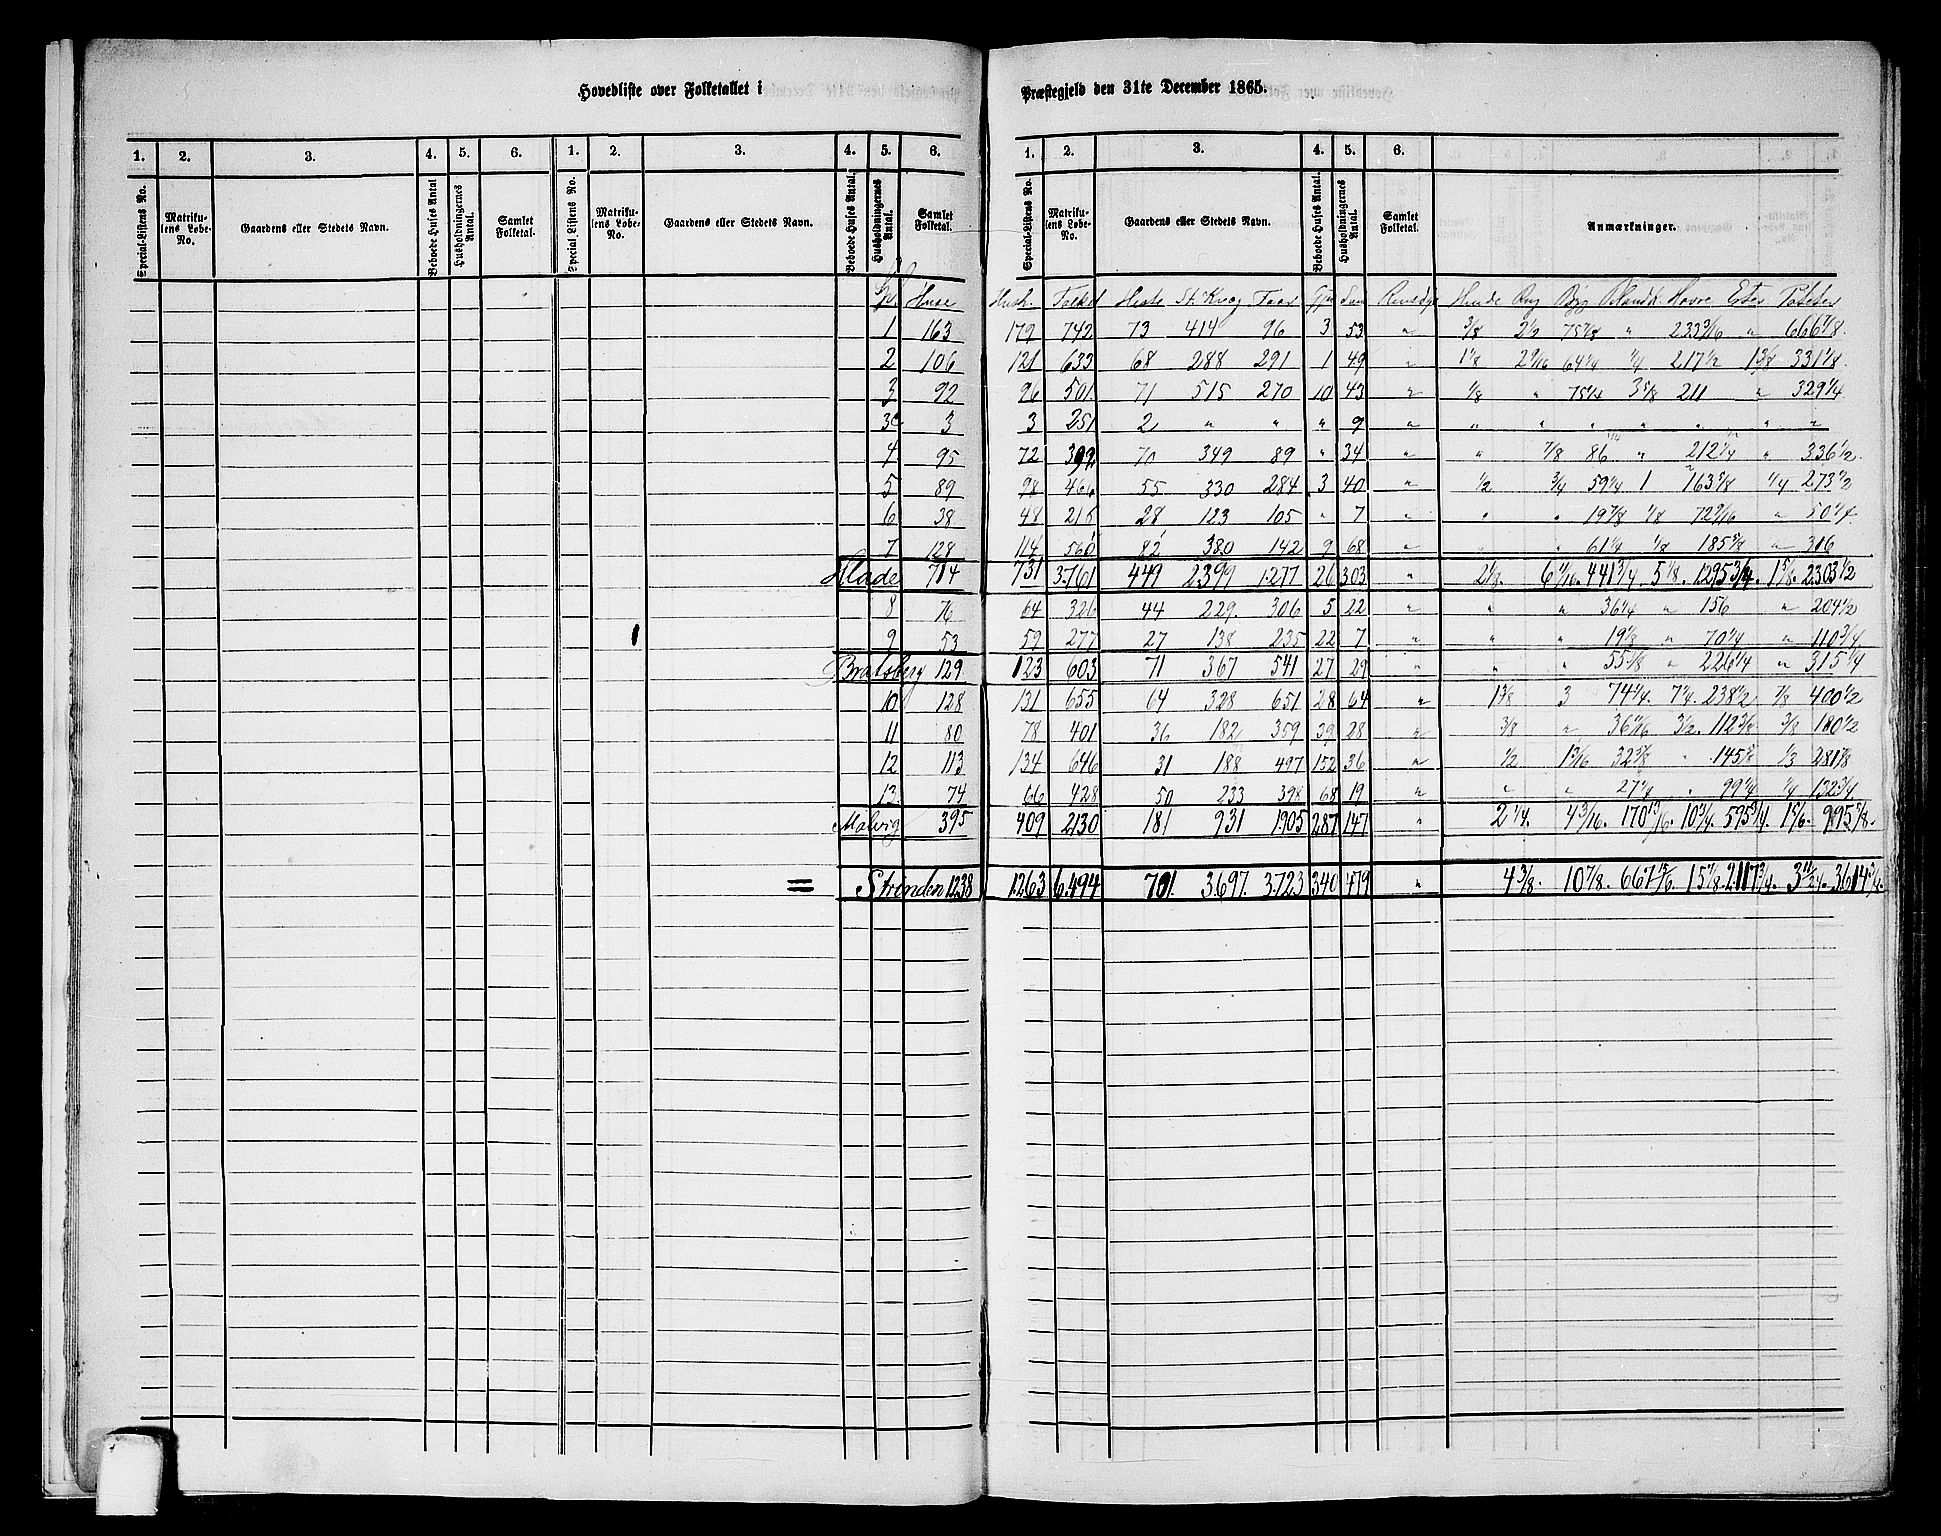 Hovedliste over Folketallet i Præstegjeld den 31te December 1865.
1. 2. 3. 4. 5. 6. 1. 2. 3. 4. 5. 6. 1. 2. 3. 4. 5. 6.
Special-Listens No. Matrikulens Løbe-No. Gaardens eller Stedets Navn. Beboede Huses Antal Husholdningernes Antal. Samlet Folketal. Special-Listens No. Matrikulens Løbe-No. Gaardens eller Stedets Navn. Beboede Huses Antal. Husholdningernes Antal. Samlet Folketal. Special-Listens No. Matrikulens Løbe-No. Gaardens eller Stedets Navn. Beboede Huses Antal. Husholdningernes Antal. Samlet Folketal. Anmærkninger.
Huse Hush. Folket Heste St. Kvæg Faar Rensdyr Hvede Rug Byg Blandk. Havre Erter Poteter
1 163 179 742 73 414 96 3 53 " 3/8 75 7/8 " 233 3/16 " 666 7/8
2 106 121 633 68 288 291 1 49 " 1 1/8 2 9/16 64 1/4 217 1/2 331 1/8
3 92 96 501 71 515 270 10 43 " 1/8 " 75 1/4 3 5/8 211 " 329 1/4
3 3 251 2 " " " 9 " " " " " " " "
4 95 72 399 70 349 89 " 34 " " 7/8 86 " 212 1/4 " 336 1/2
5 89 98 466 55 330 284 3 40 " 1/2 3/4 59 1/4 1 163 5/8 1/4 273 1/2
6 38 48 216 28 123 105 " 7 " " " 19 7/8 1/8 72 9/16 " 50 1/4
7 128 114 560 82 380 142 9 68 " " " 61 1/4 1/8 185 5/8 " 316
Hlade 714 731 3.761 449 2399 1.277 26 303 " 2 1/8 441 3/4 5 7/8 1295 3/4 1 5/8 2303 1/2
8 76 64 326 44 229 306 5 22 " " " 36 1/4 " 156 " 204 1/2
9 53 59 277 27 138 235 22 7 " " " 19 1/8 " 70 1/4 " 110 3/4
Bratsberg 129 123 603 71 367 541 27 29 " " " 55 3/8 " 226 1/4 " 315 1/4
10 128 131 655 64 328 651 28 64 " 1 3/8 3 74 1/4 7 1/4 238 1/2 7/8 400 1/2
11 80 78 401 36 182 359 39 28 " 3/8 " 3 1/2 112 3/8 3/8 180 1/2
12 113 134 646 31 188 497 152 36 " 1/2 1 3/16 32 3/8 " 145 1/3 281 7/8
13 74 66 428 50 233 398 68 19 " " " 27 1/4 " 99 1/4 1/4 132 3/4
Malvig 395 409 2130 181 931 1905 287 147 " 2 1/4 4 3/16 170 13/16 10 3/4 595 3/4 995 5/8
= Strinden 1238 1263 6.494 701 3.697 3.723 340 479 " 4 3/8 10 7/8 667 15/16 15 7/8 2117 3/4 3 11/24 3614 3/8